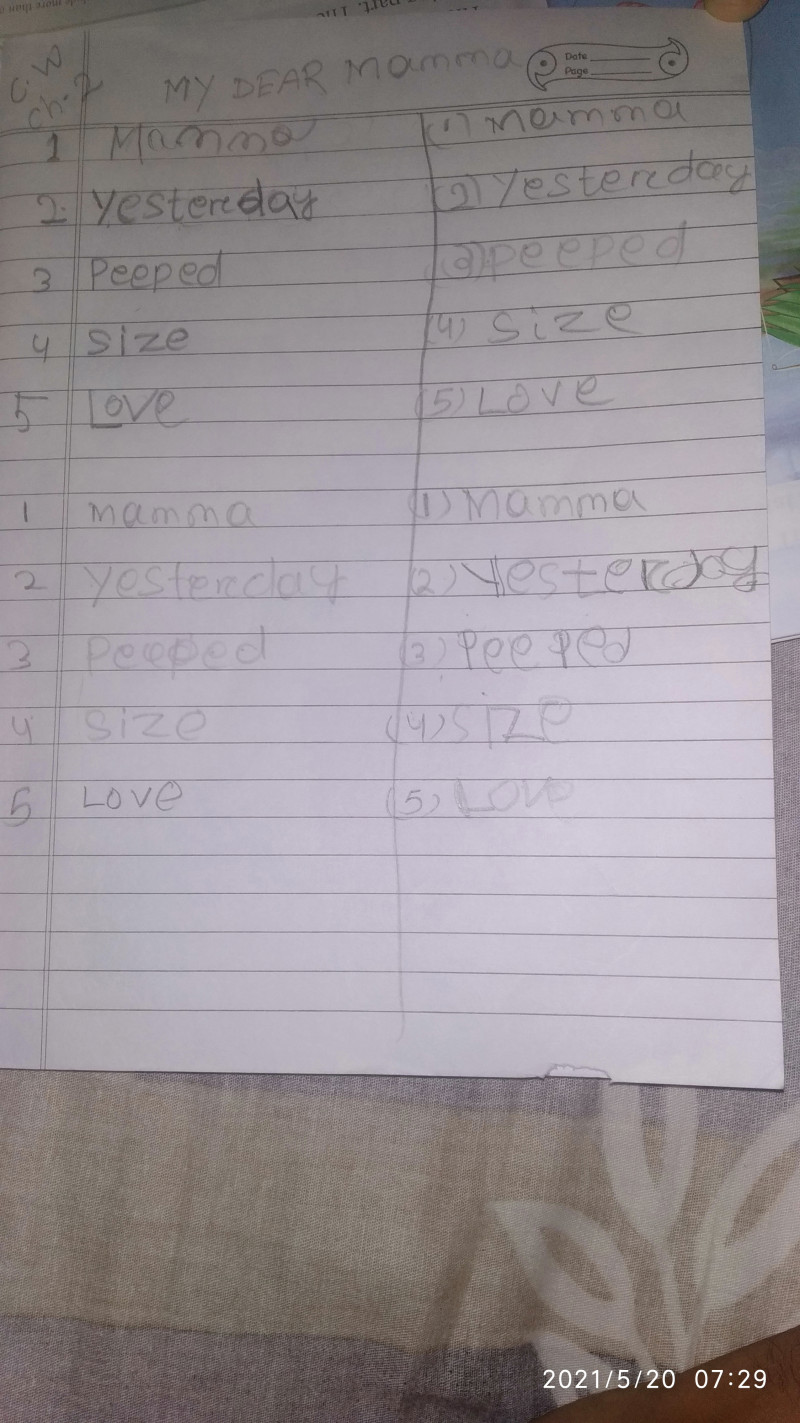 C.W
Ch. 2
MY DEAR Mamma
Date
Page
1 Mamma
2. Yesterday
3 Peeped
4 Size
5 Love
1 mamma
2 yesterday
3 Peeped
4 Size
5 Love
(1) Mamma
(2) Yesterday
(3) Peeped
(4) Size
(5) Love
(1) Mamma
(2) Yesterday
(3) Peeped
(4) Size
(5) Love
2021/5/20 07:29